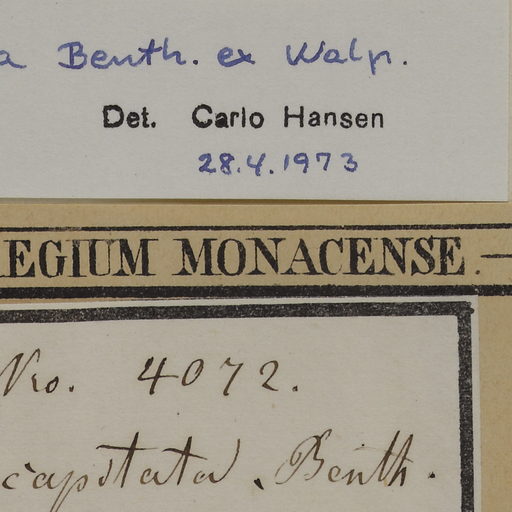 a Benth. ex Walp.
Det. Carlo Hansen
28.4.1973
EGIUM MONACENSE
Nro. 4072.
capitata. Benth.